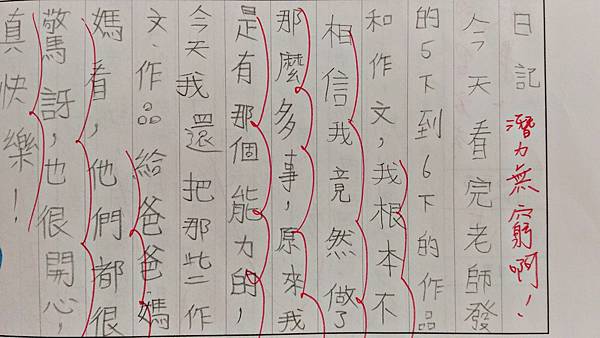 日記 潛力無窮啊！
今天看完老師發
的5下到6下的作品
和作文，我根本不
相信我竟然做了
那麼多事，原來我
是有那個能力的，
今天我還把那些作
文、作品給爸爸、媽
媽看，他們都很
驚訝，也很開心，
真快樂！